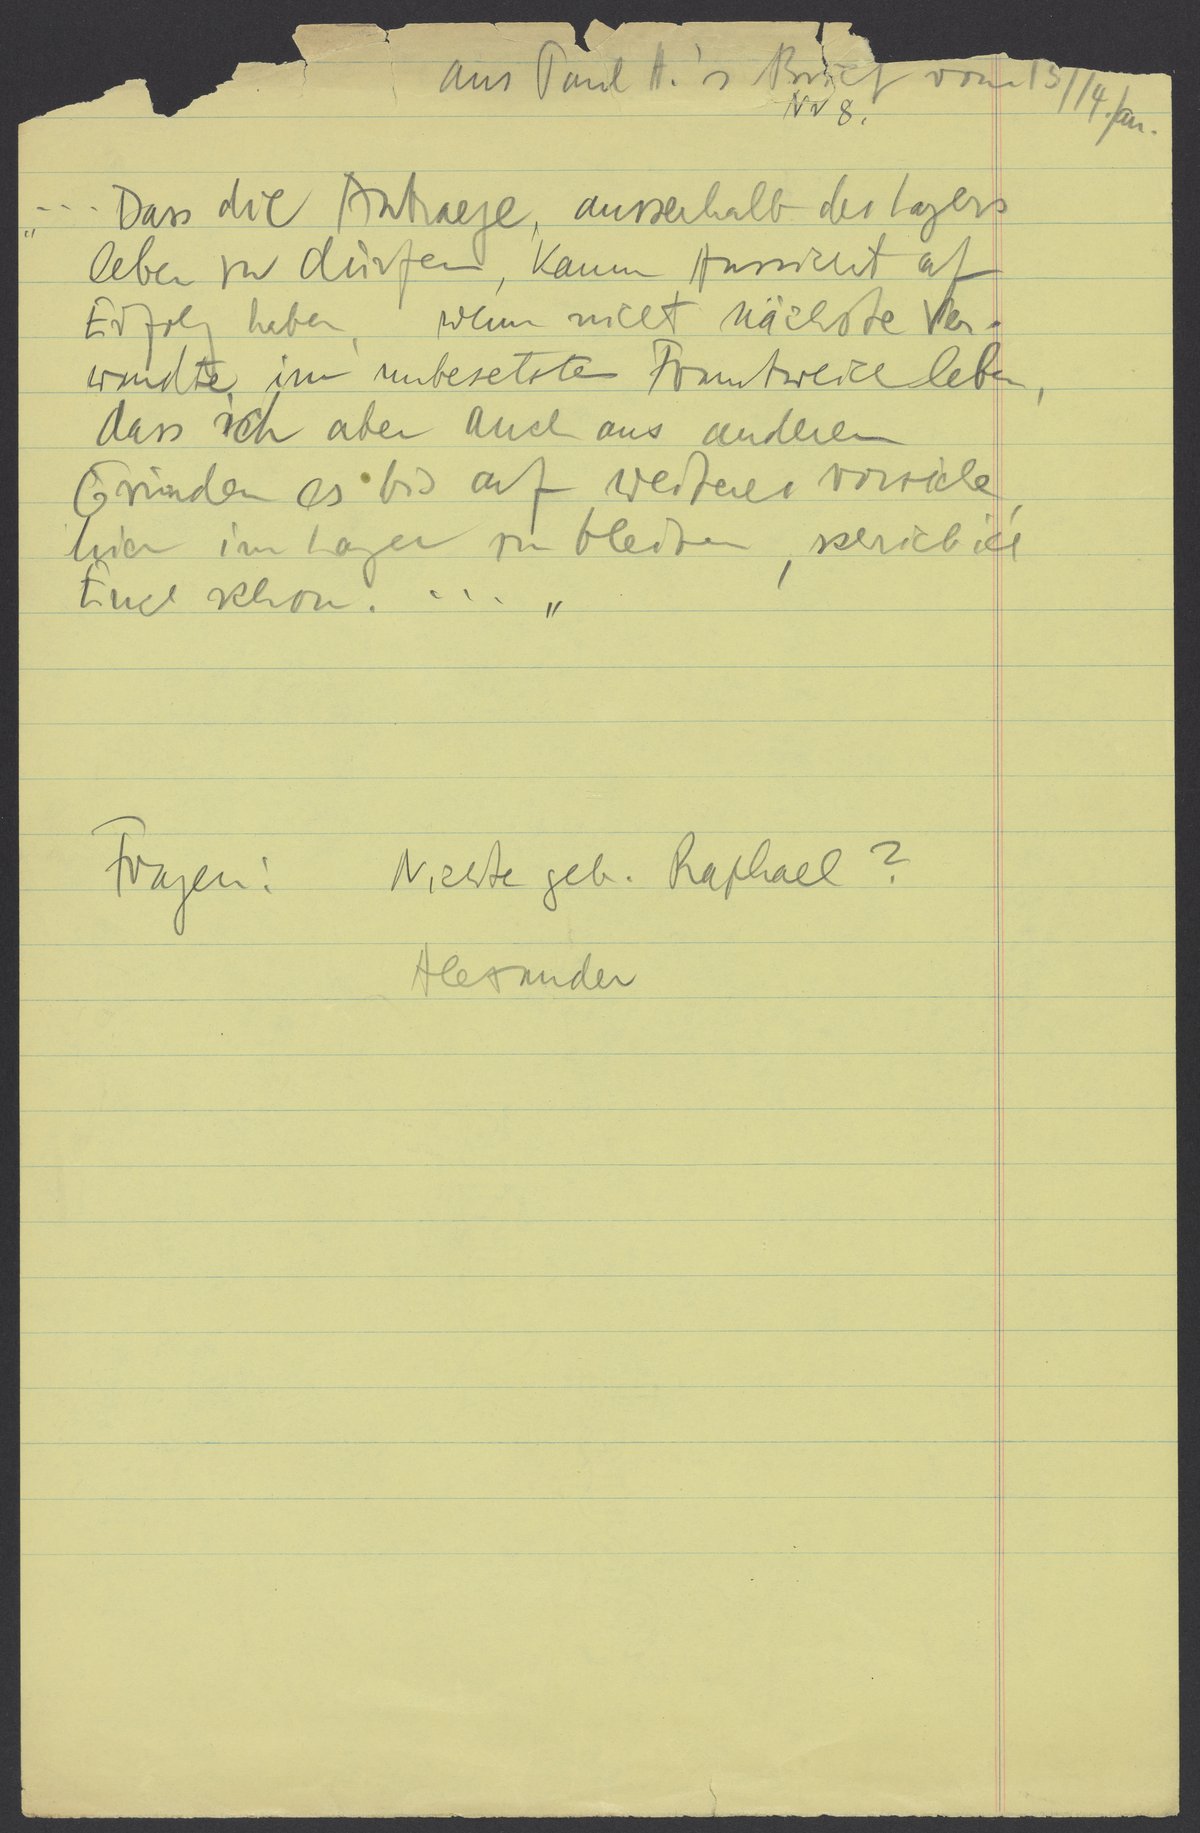 aus Paul H.'s Brief vom 13/14. Jan.
Nr 8.
"... Dass die Antraege, ausserhalb des Lagers
leben zu dürfen, kaum Aussicht auf
Erfolg haben, wenn nicht nächste Ver-
wandte im unbesetzten Frankreich leben,
dass ich aber auch aus anderen
Gründen es bis auf weiteres vorziehe,
hier im Lager zu bleiben, schrieb ich
Euch schon. ... "
Fragen: Nichte geb. Raphael?
Alexander